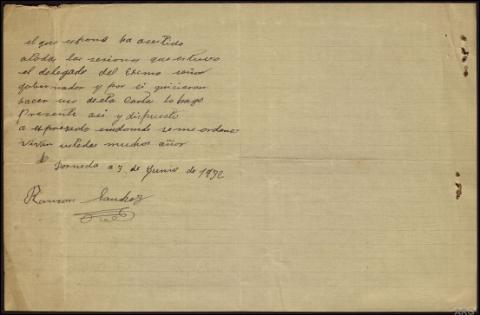 el que espone ha asistido
a todas las sesiones que estuvo
el delegado del Exmo señor
gobernador y por si quisieran
hacer uso de sta Carta lo hago
Presente asi y dispuesto
a espresarlo cudonde se me ordene
vivan ustedes muchos años
Torneda a 7 de Junio de 1932
Ramon Sanchez